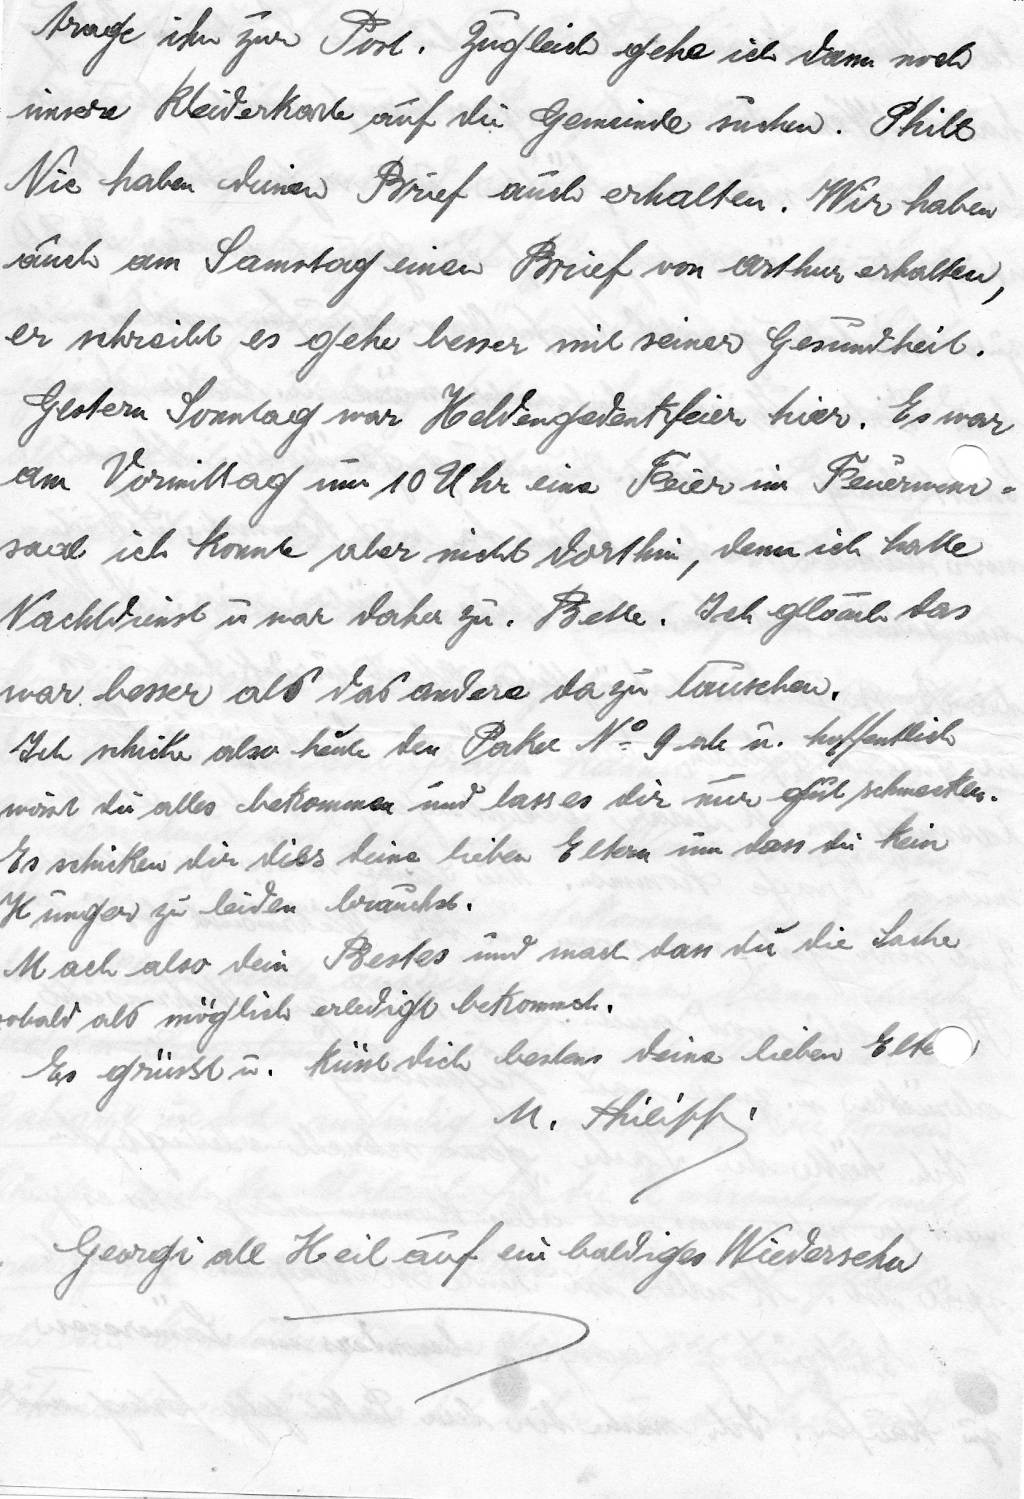 trage ihn zur Post. Zugleich gehe ich dann noch
unsere Kleiderkarte auf die Gemeinde suchen. Phile
Nic haben deinen Brief auch erhalten. Wir haben
auch am Samstag einen Brief von Arthur erhalten,
er schreibt es gehe besser mit seiner Gesundheit.
Gestern Sonntag war Heldengedenkfeier hier. Es war
am Vormittag um 10 Uhr eine Feier im Feuerwehr-
saal ich konnte aber nicht dorthin, denn ich hatte
Nachtdienst u war daher zu. Bette. Ich glaub das
war besser als das andere da zu lauschen.
Ich schike also heute den Paket No 9 ab u. hoffentlich
wirst du alles bekommen und lass es dir nur gut schmecken.
Es schicken dir dies deine lieben Eltern um dass du kein
Hunger zu leiden brauchst.
Mach also dein Bestes und mach dass du die Sache
sobald als möglich erledigt bekommst.
Es grüsst u. küsst dich bestens deine lieben Elte
M. Philipp
Georgi all Heil auf ein baldiges Wiedersehn